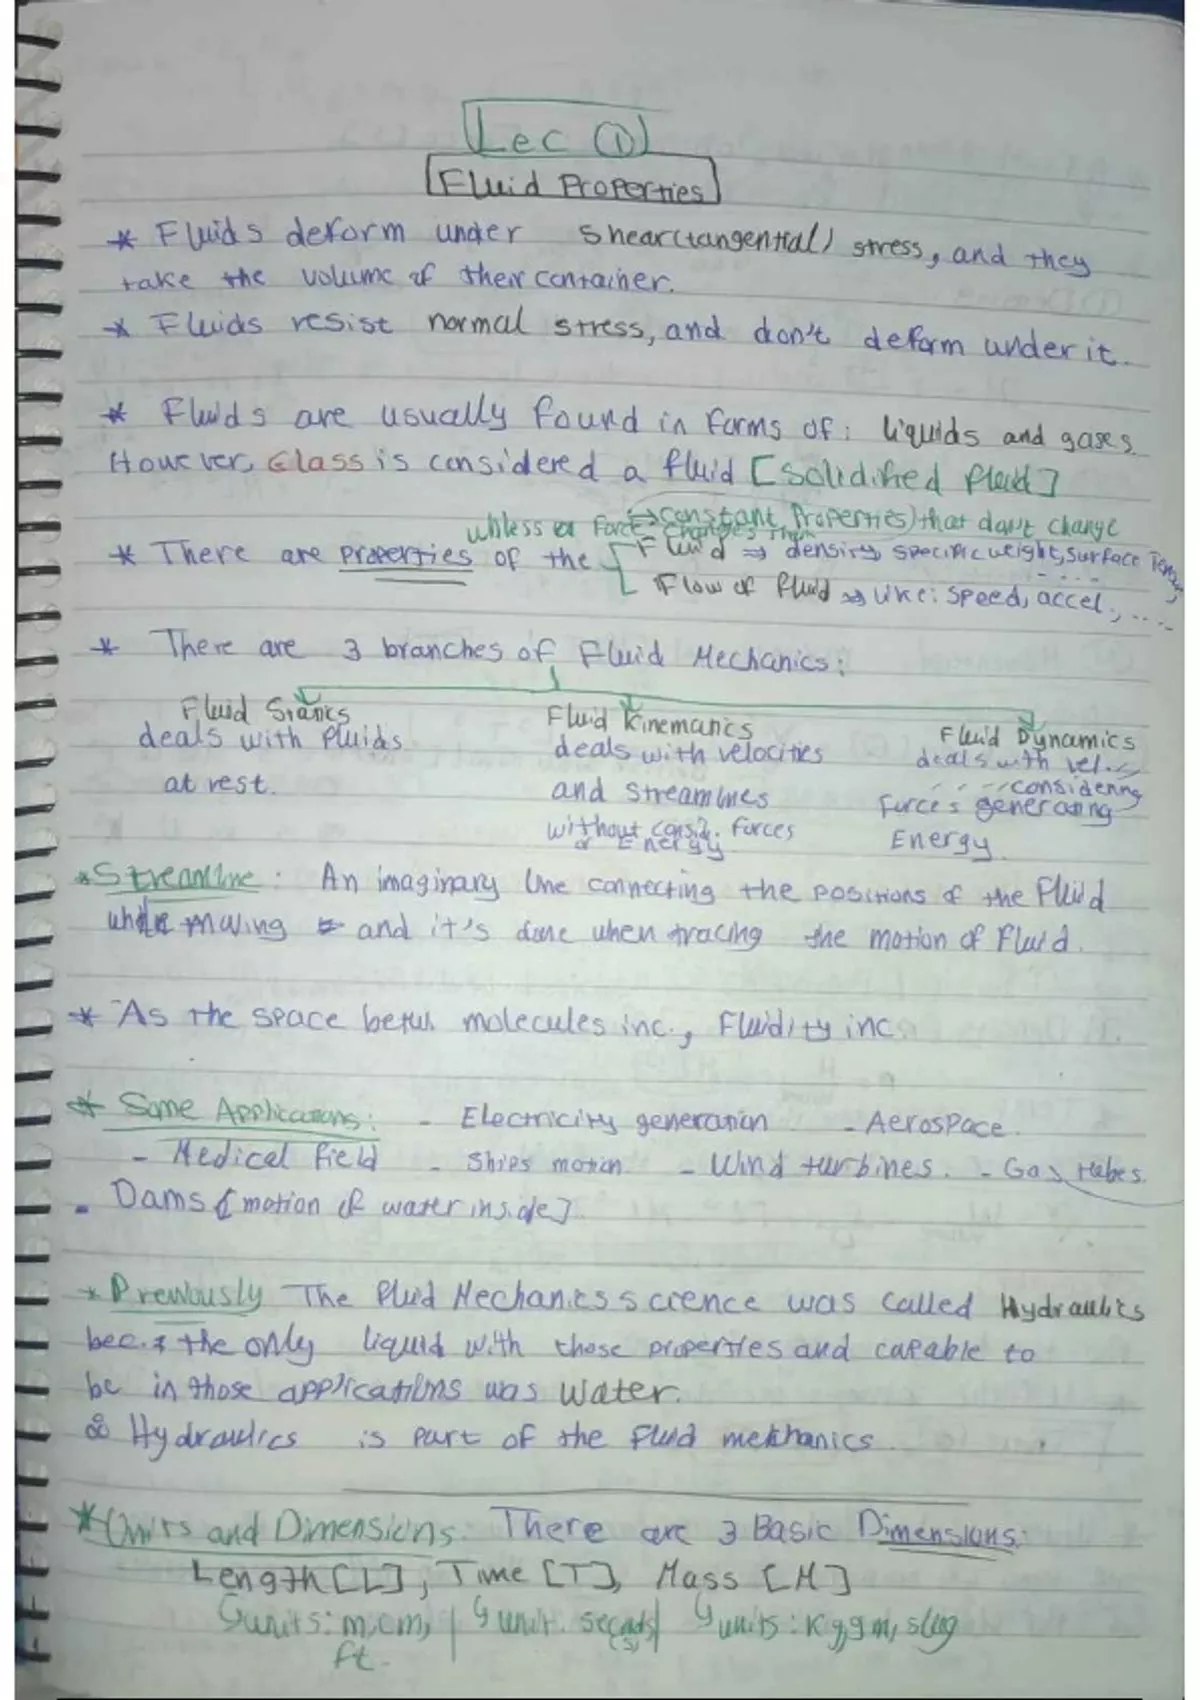 Lec ①
Fluid Properties
* Fluids deform under shear(tangential) stress, and they
take the volume of their container.
* Fluids resist normal stress, and don't deform under it.
* Fluids are usually found in forms of: liquids and gases.
However, Glass is considered a fluid [solidified fluid]
↪constant properties) that don't change
unless a Force changes them
* There are properties of the Fluid ⇒ density, specific weight, surface Tension, ....
Flow of fluid ⇒ like: speed, accel., ....
* There are 3 branches of Fluid Mechanics:
Fluid Statics
deals with fluids
at rest.
Fluid Kinematics
deals with velocities
and streamlines
without consid. forces
or Energy
Fluid Dynamics
deals with vel.
considering
forces generating
Energy.
* Streamline: An imaginary line connecting the positions of the fluid
while moving and it's done when tracing the motion of fluid.
* As the space betw. molecules inc., Fluidity inc.
* Some Applications: - Electricity generation - Aerospace.
- Medical field - Ships motion - Wind turbines. - Gas tubes.
- Dams [motion of water inside]
* Previously The fluid Mechanics science was called Hydraulics
bec. the only liquid with those properties and capable to
be in those applications was water.
∴ Hydraulics is part of the fluid mekhanics.
* Units and Dimensions: There are 3 Basic Dimensions:
Length [L], Time [T], Mass [M]
↳units: m, cm, | ↳unit. seconds | ↳units: Kg, gm, slug
ft. (s)